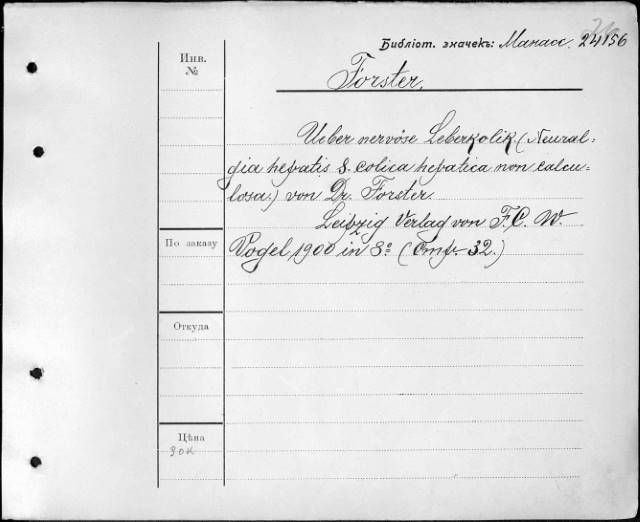 Библіот. значекъ: Манасс. 24156
Инв.
№
Forster.
Ueber nervöse Leberkolik. (Neural-
gia hepatis S. colica hepatica non calcu-
losa.) von Dr. Forster.
Leibzig Verlag von F. C. W.
Vogel. 1900 in 8º (Стр. 32.)
По заказу
Откуда
Цѣна
30к